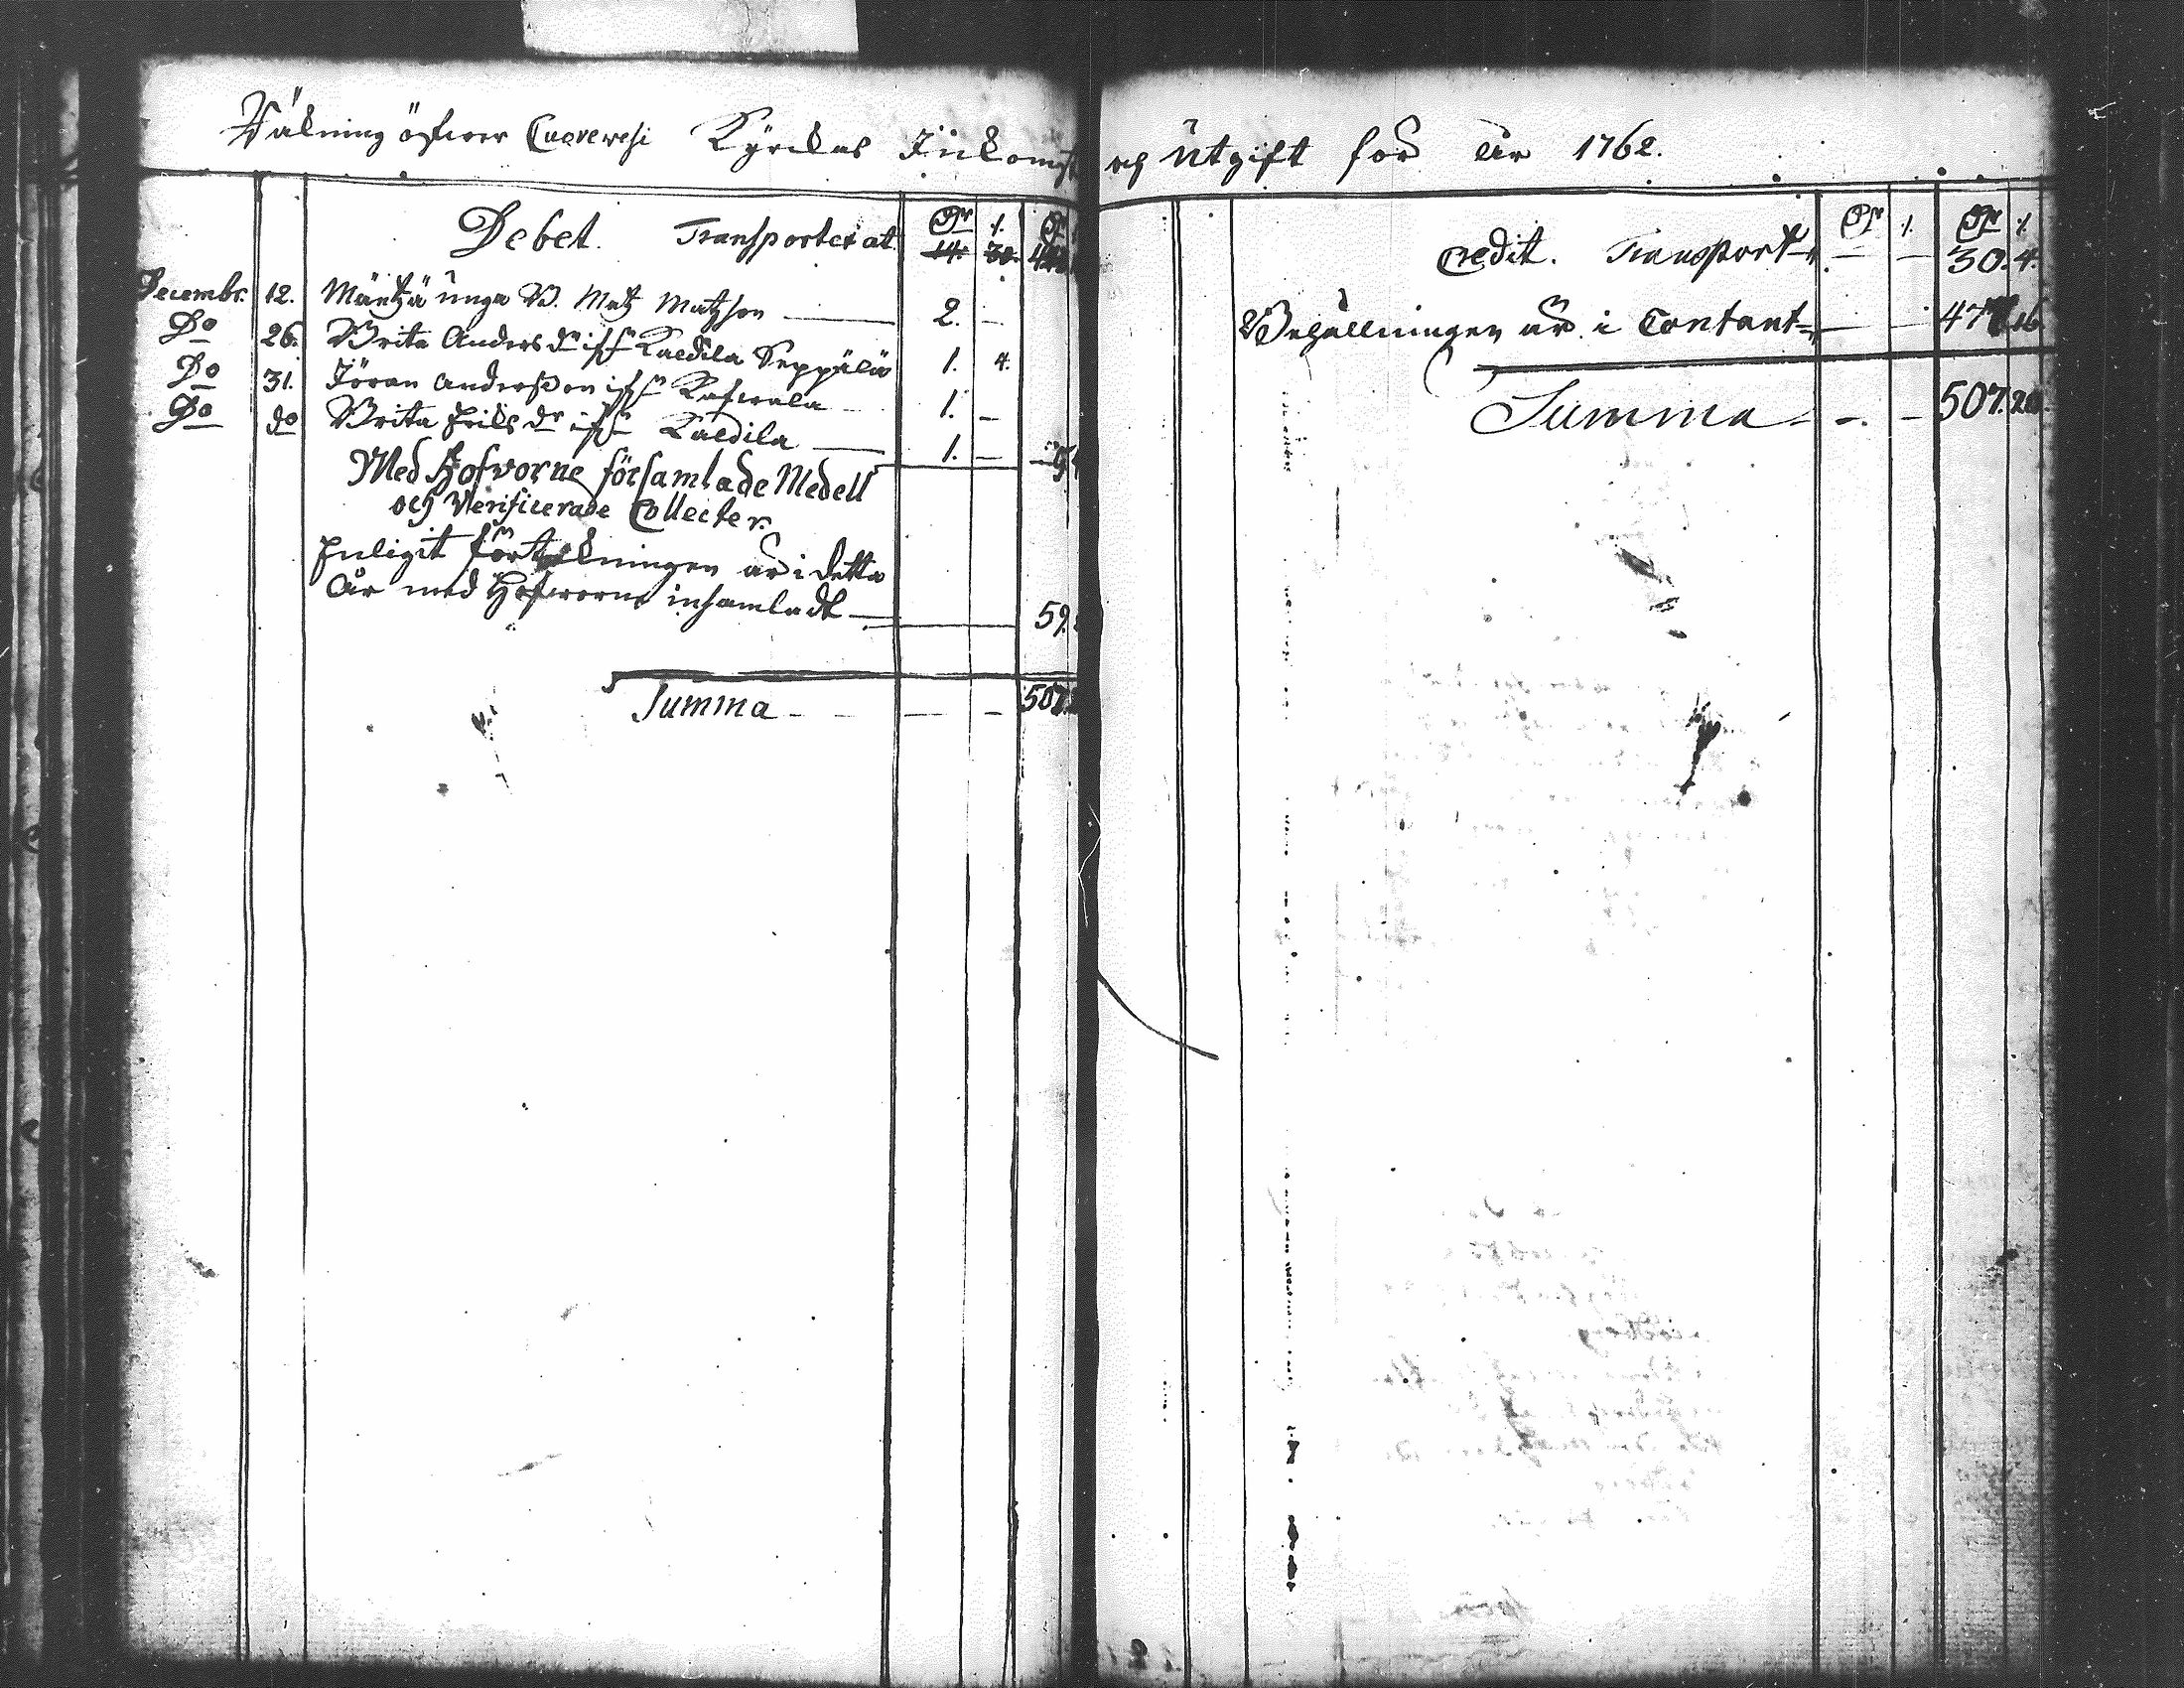 Räkning öfwer Cuorewesi Kyrckas Inkomst och Utgift för År 1762.
Debet. Transporterat 14. 30.
Decembr. 12. Mäntzä unga B. Matz Matzson 2. —
Do 26. Brita Anders dr ifrn Kaldila Seppälä 1. 4.
Do 31. Jöran Andersson ifrn 1. —
Do do Brita Eriks dr ifrn Kaldila 1. —
Med Hofvorne församlade Medell
och Verificerade Collecter.
Enligit förtekningen är i detta
År med Hofworne insamladt 59.
Summa 507.
Credit. Transport — — 50. 4.
Behållningen är i Contant — — 477. 16.
Summa — — 507. 20.